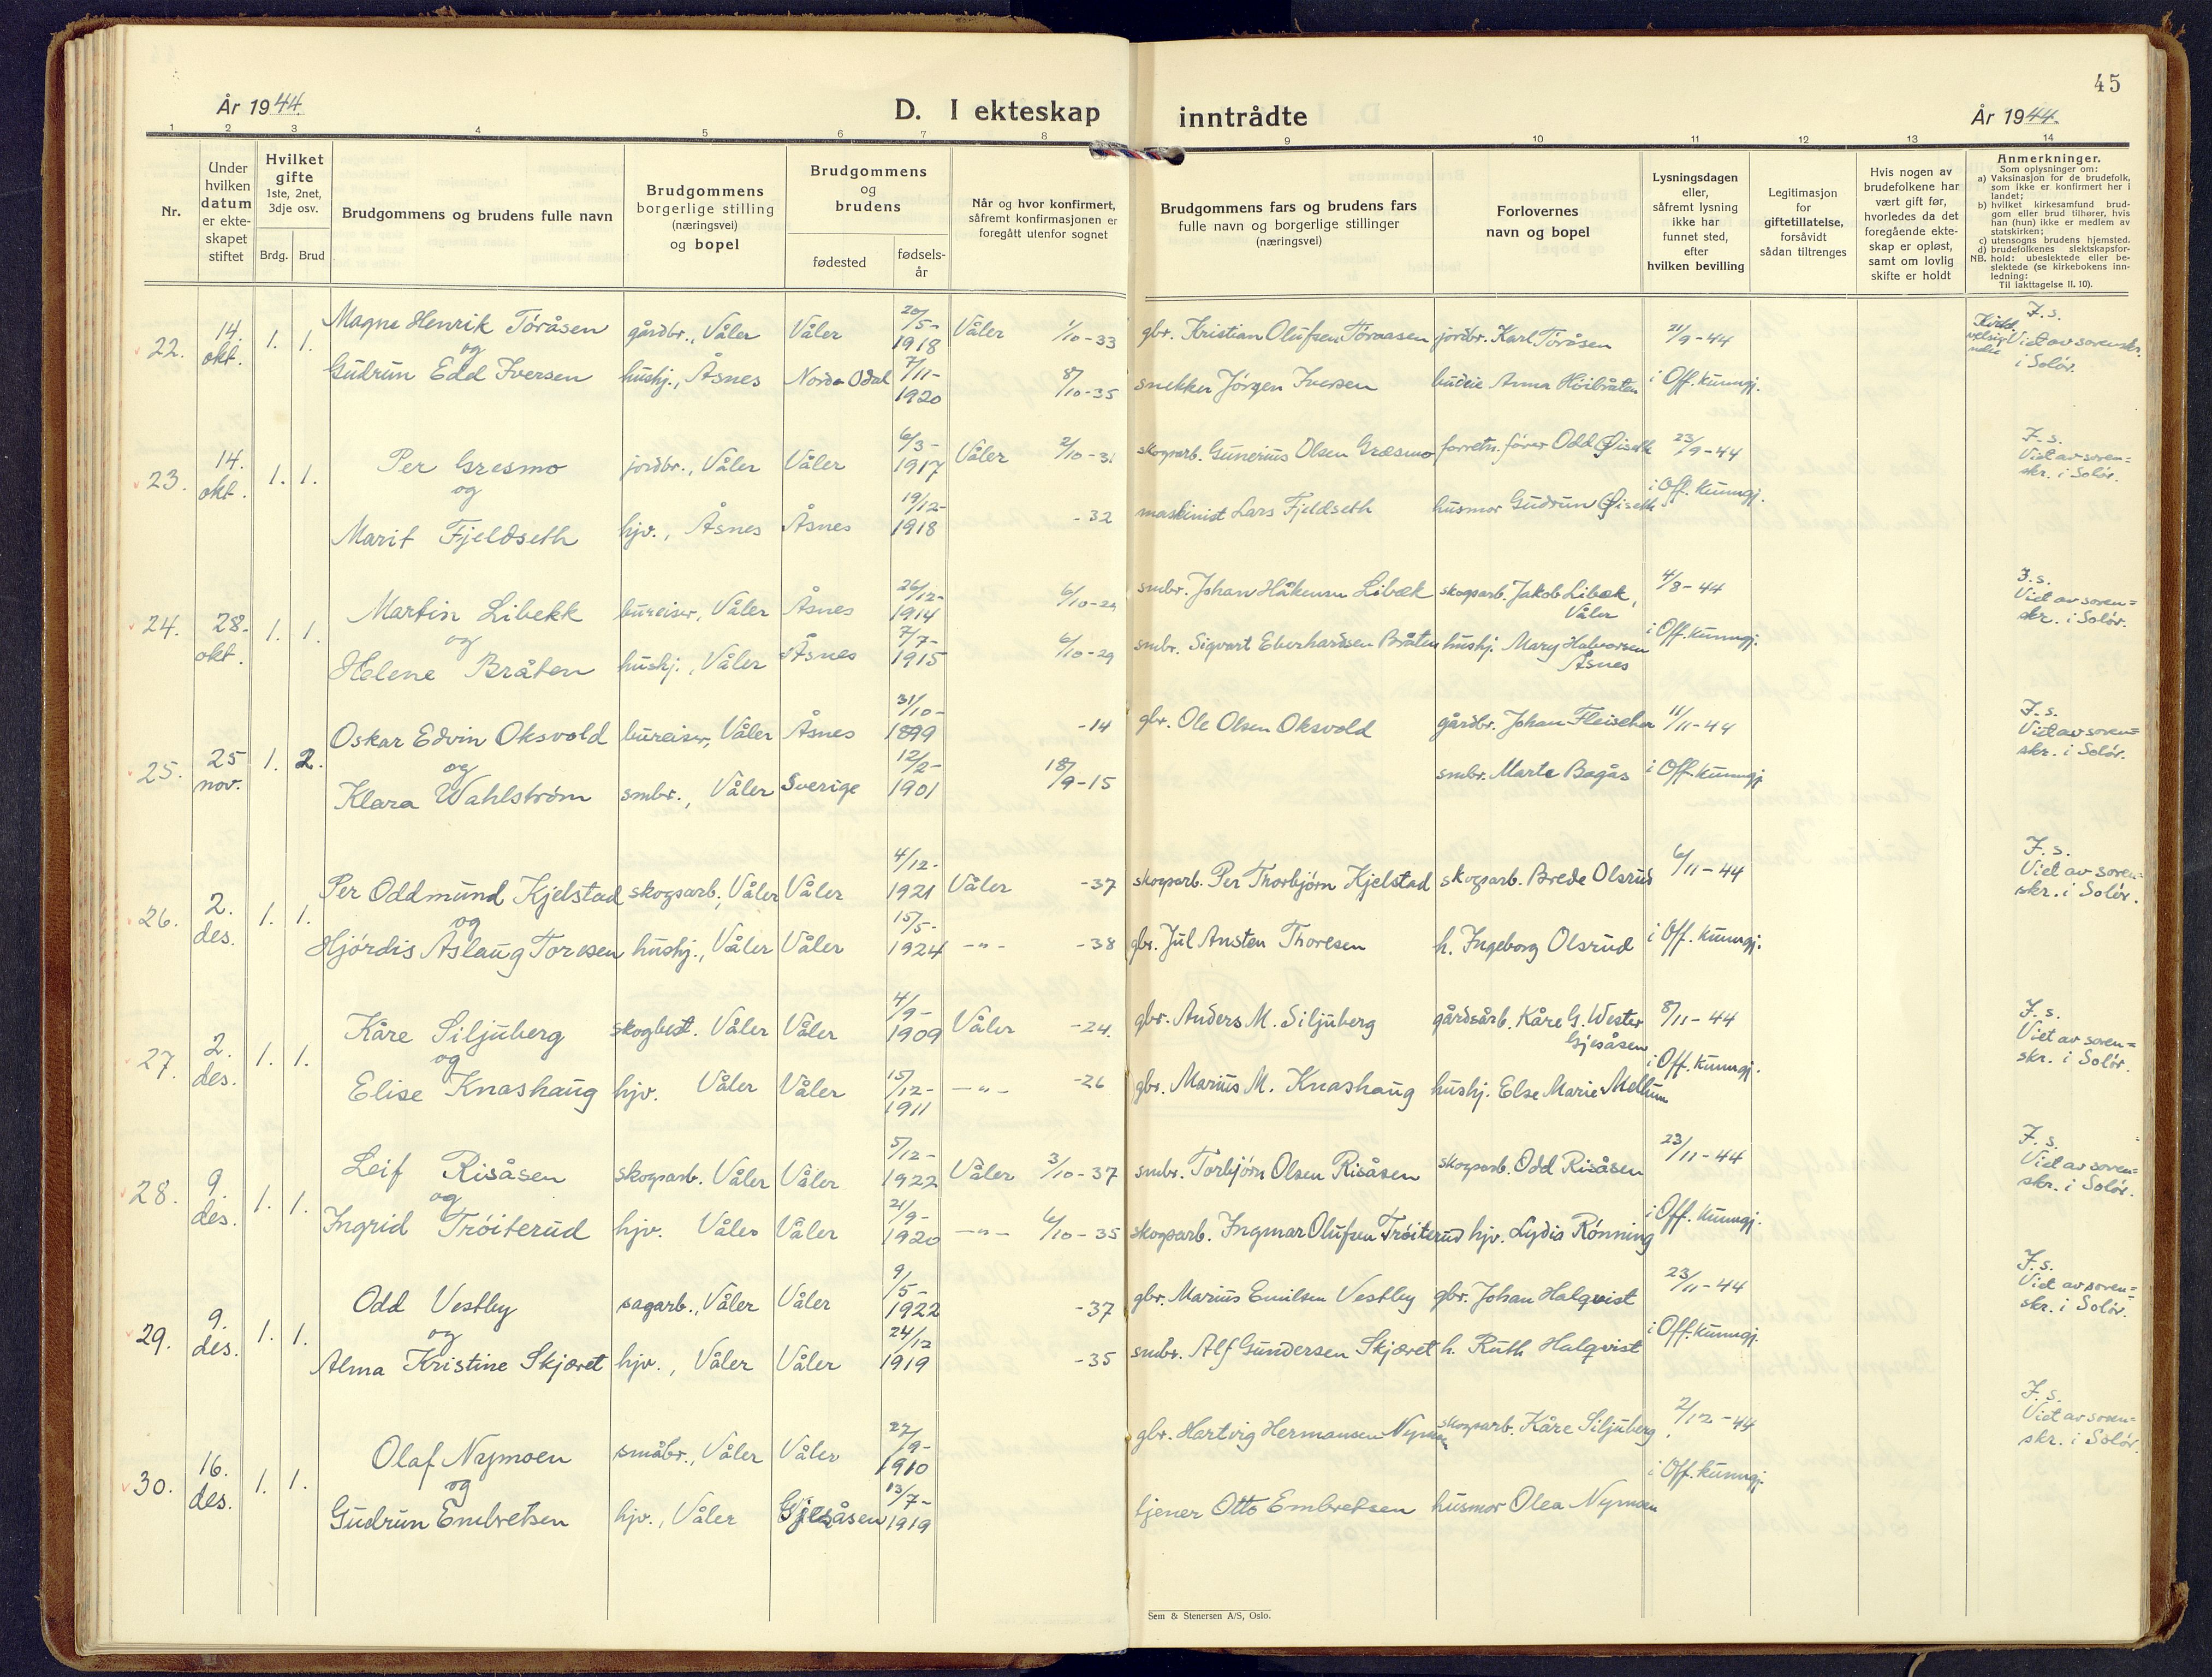 45
År 1944.
D. I ekteskap inntrådte
År 1944.
1 2 3 4 5 6 7 8 9 10 11 12 13 14
Nr.
Under hvilken datum er ekteskapet stiftet
Hvilket gifte 1ste, 2net, 3dje osv.
Brdg. Brud
Brudgommens og brudens fulle navn
Brudgommens borgerlige stilling (næringsvei) og bopel
Brudgommens og brudens
fødested
fødselsår
Når og hvor konfirmert, såfremt konfirmasjonen er foregått utenfor sognet
Brudgommens fars og brudens fars fulle navn og borgerlige stillinger (næringsvei)
Forlovernes navn og bopel
Lysningsdagen eller, såfremt lysning ikke har funnet sted, efter hvilken bevilling
Legitimasjon for giftetillatelse, forsåvidt sådan tiltrenges
Hvis nogen av brudefolkene har vært gift før, hvorledes da det foregående ekteskap er opløst, samt om lovlig skifte er holdt
Anmerkninger.
Som oplysninger om:
a) Vaksinasjon for de brudefolk, som ikke er konfirmert her i landet;
b) hvilket kirkesamfund brudgom eller brud tilhører, hvis han (hun) ikke er medlem av statskirken;
c) utensogns brudens hjemsted.
d) brudefolkenes slektskapsforhold: ubeslektede eller beslektede (se kirkebokens innledning:
NB.
Til iakttagelse II. 10).
22. 14. okt. 1. 1. Magne Henrik Töråsen gårdbr., Våler Våler 20/5- 1918 Våler 1/10-33 gbr. Kristian Olufsen Töraasen jordbr. Karl Töråsen 21/9-44 F. s.
og
Gudrun Edd Iversen hushj., Åsnes Nordre Odal 7/11- 1920 8/10-35 snekker Jörgen Iversen budeie Anna Höibråten i Off. kunngj. Viet av sorenskr. i Solör.
23. 14. okt. 1. 1. Per Gresmo jordbr., Våler Våler 6/3- 1917 Våler 2/10-31 skogsarb. Gunerius Olsen Græsmo forretn.förer Odd Øiseth 23/9-44 F. s.
og
Marit Fjeldseth hjv., Åsnes Åsnes 19/12- 1918 -32 maskinist Lars Fjeldseth husmor Gudrun Øiseth i Off. kunngj. Viet av sorenskr. i Solör.
24. 28. okt. 1. 1. Martin Libekk bureiser, Våler Åsnes 26/12- 1914 6/10-29 smbr. Johan Håkensen Libæk skogsarb. Jakob Libæk, Våler 4/8-44 F. s.
og
Helene Bråten hushj., Våler Åsnes 7/7- 1915 6/10-29 smbr. Sigvart Eberhardsen Bråten hushj. Mary Halvorsen Åsnes i Off. kunngj. Viet av sorenskr. i Solör.
25. 25 nov. 1. 2. Oskar Edvin Oksvold bureiser, Våler Åsnes 31/10- 1899 -14 gbr. Ole Olsen Oksvold gårdbr. Johan Fleischer 11/11-44 F. s.
og
Klara Wahlström smbr., Våler Sverige 12/2- 1901 18/9-15 smbr. Marte Bagås i Off. kunngj. Viet av sorenskr. i Solör.
26. 2. des. 1. 1. Per Oddmund Kjelstad skogsarb., Våler Våler 4/12- 1921 Våler -37 skogsarb. Per Thorbjörn Kjelstad skogsarb. Brede Olsrud 6/11-44 F. s.
og
Hjördis Aslaug Toresen hushj., Våler Våler 15/5- 1924 -"- -38 gbr. Jul Ansten Thoresen h. Ingeborg Olsrud i Off. kunngj. Viet av sorenskr. i Solör.
27. 2. des. 1. 1. Kåre Siljuberg skogbest. Våler Våler 4/9- 1909 Våler -24. gbr. Anders M. Siljuberg gårdsarb. Kåre G. Wester Gjesåsen 8/11-44 F. s.
og
Elise Knashaug hjv. Våler Våler 15/12- 1911 -"- -26 gbr. Marius M. Knashaug hushj. Else Marie Mellum i Off. kunngj. Viet av sorenskr. i Solör.
28. 9. des. 1. 1. Leif Risåsen skogsarb. Våler Våler 5/12- 1922 Våler 3/10-37 smbr. Torbjörn Olsen Risåsen skogsarb. Odd Risåsen 23/11-44 F. s.
og
Ingrid Tröiterud hjv. Våler Våler 21/9- 1920 -"- 6/10-35 skogsarb. Ingmar Olufsen Tröiterud hjv. Lydia Rönning i Off. kunngj. Viet av sorenskr. i Solör.
29. 9. des. 1. 1. Odd Vestby sagarb., Våler Våler 9/5- 1922 -37 gbr. Marius Emilsen Vestby gbr. Johan Halqvist 23/11-44 F. s.
og
Alma Kristine Skjæret hjv., Våler Våler 24/12 1919 -35 smbr. Alf Gundersen Skjæret h. Ruth Halqvist i Off. kunngj. Viet av sorenskr. i Solör.
30. 16. des. 1. 1. Olaf Nymoen småbr., Våler Våler 27/9- 1910 gbr. Hartvig Hermansen Nymoen skogsarb. Kåre Siljuberg 2/12-44 F. s.
og
Gudrun Embretsen hjv., Våler Gjesåsen 13/7- 1919 tjener Otto Embretsen husmor Olea Nymoen i Off. kunngj. Viet av sorenskr. i Solör.
Sem & Stenersen A/S, Oslo.